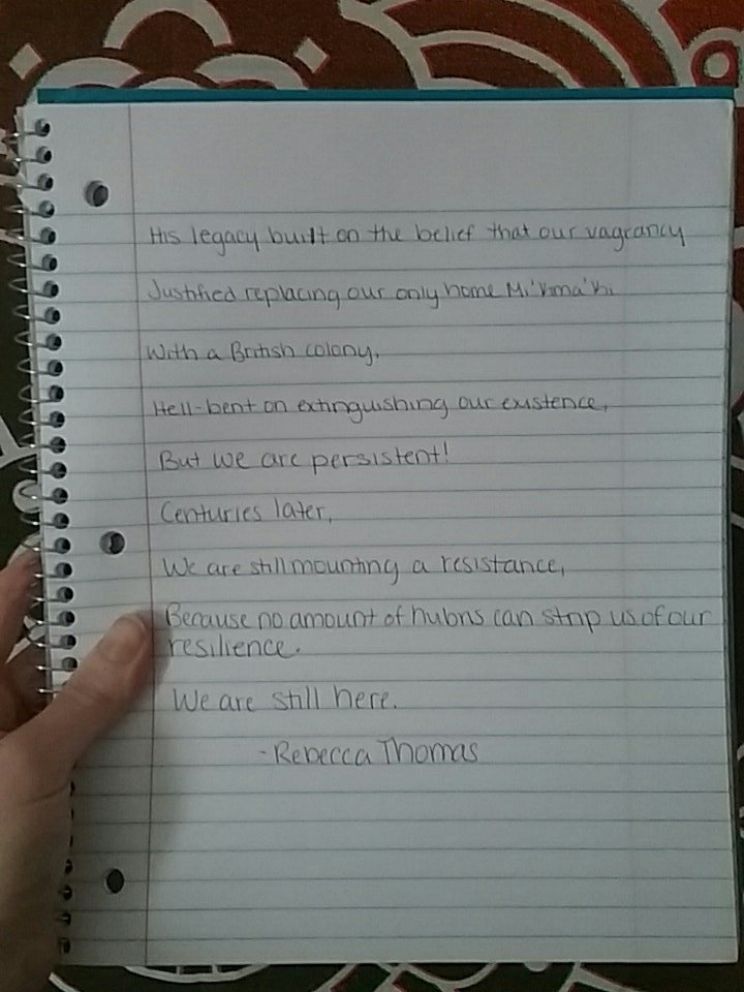 His legacy built on the belief that our vagrancy
Justified replacing our only home Mi'kma'ki
With a British colony,
Hell-bent on extinguishing our existence,
But we are persistent!
Centuries later,
We are still mounting a resistance,
Because no amount of hubris can strip us of our
resilience.
We are still here.
-Rebecca Thomas